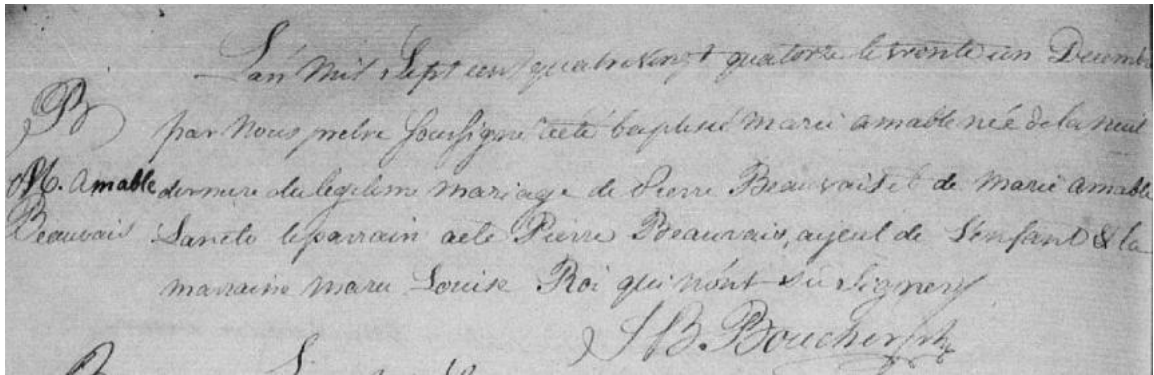 L'an Mil Sept cent quatre vingt quatorze le trente un Decembre
B par Nous pretre Soussigné a été baptisé Marie amable née de la nuit
M. Amable derniere du legitime mariage de Pierre Beauvais et de Marie Amable
Beauvais Lancto le parrain a ete Pierre Beauvais, ayeul de l'enfant & la
marraine Marie Louise Roi qui n'ont sù signer
J B. Boucher ptre